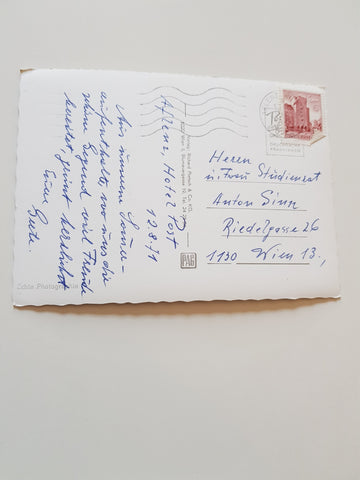 Aflenz, Hotel Post
12.8.71
Aus unserem Sommer-
aufenthalte, wo uns die
schöne Gegend viel Freude
bereitet grüsst herzlichst
Eure
Grete.
Herrn
u. Frau Studienrat
Anton Sinn
Riedelgasse 26
1130 Wien 13,
Echte Photographie
PAG